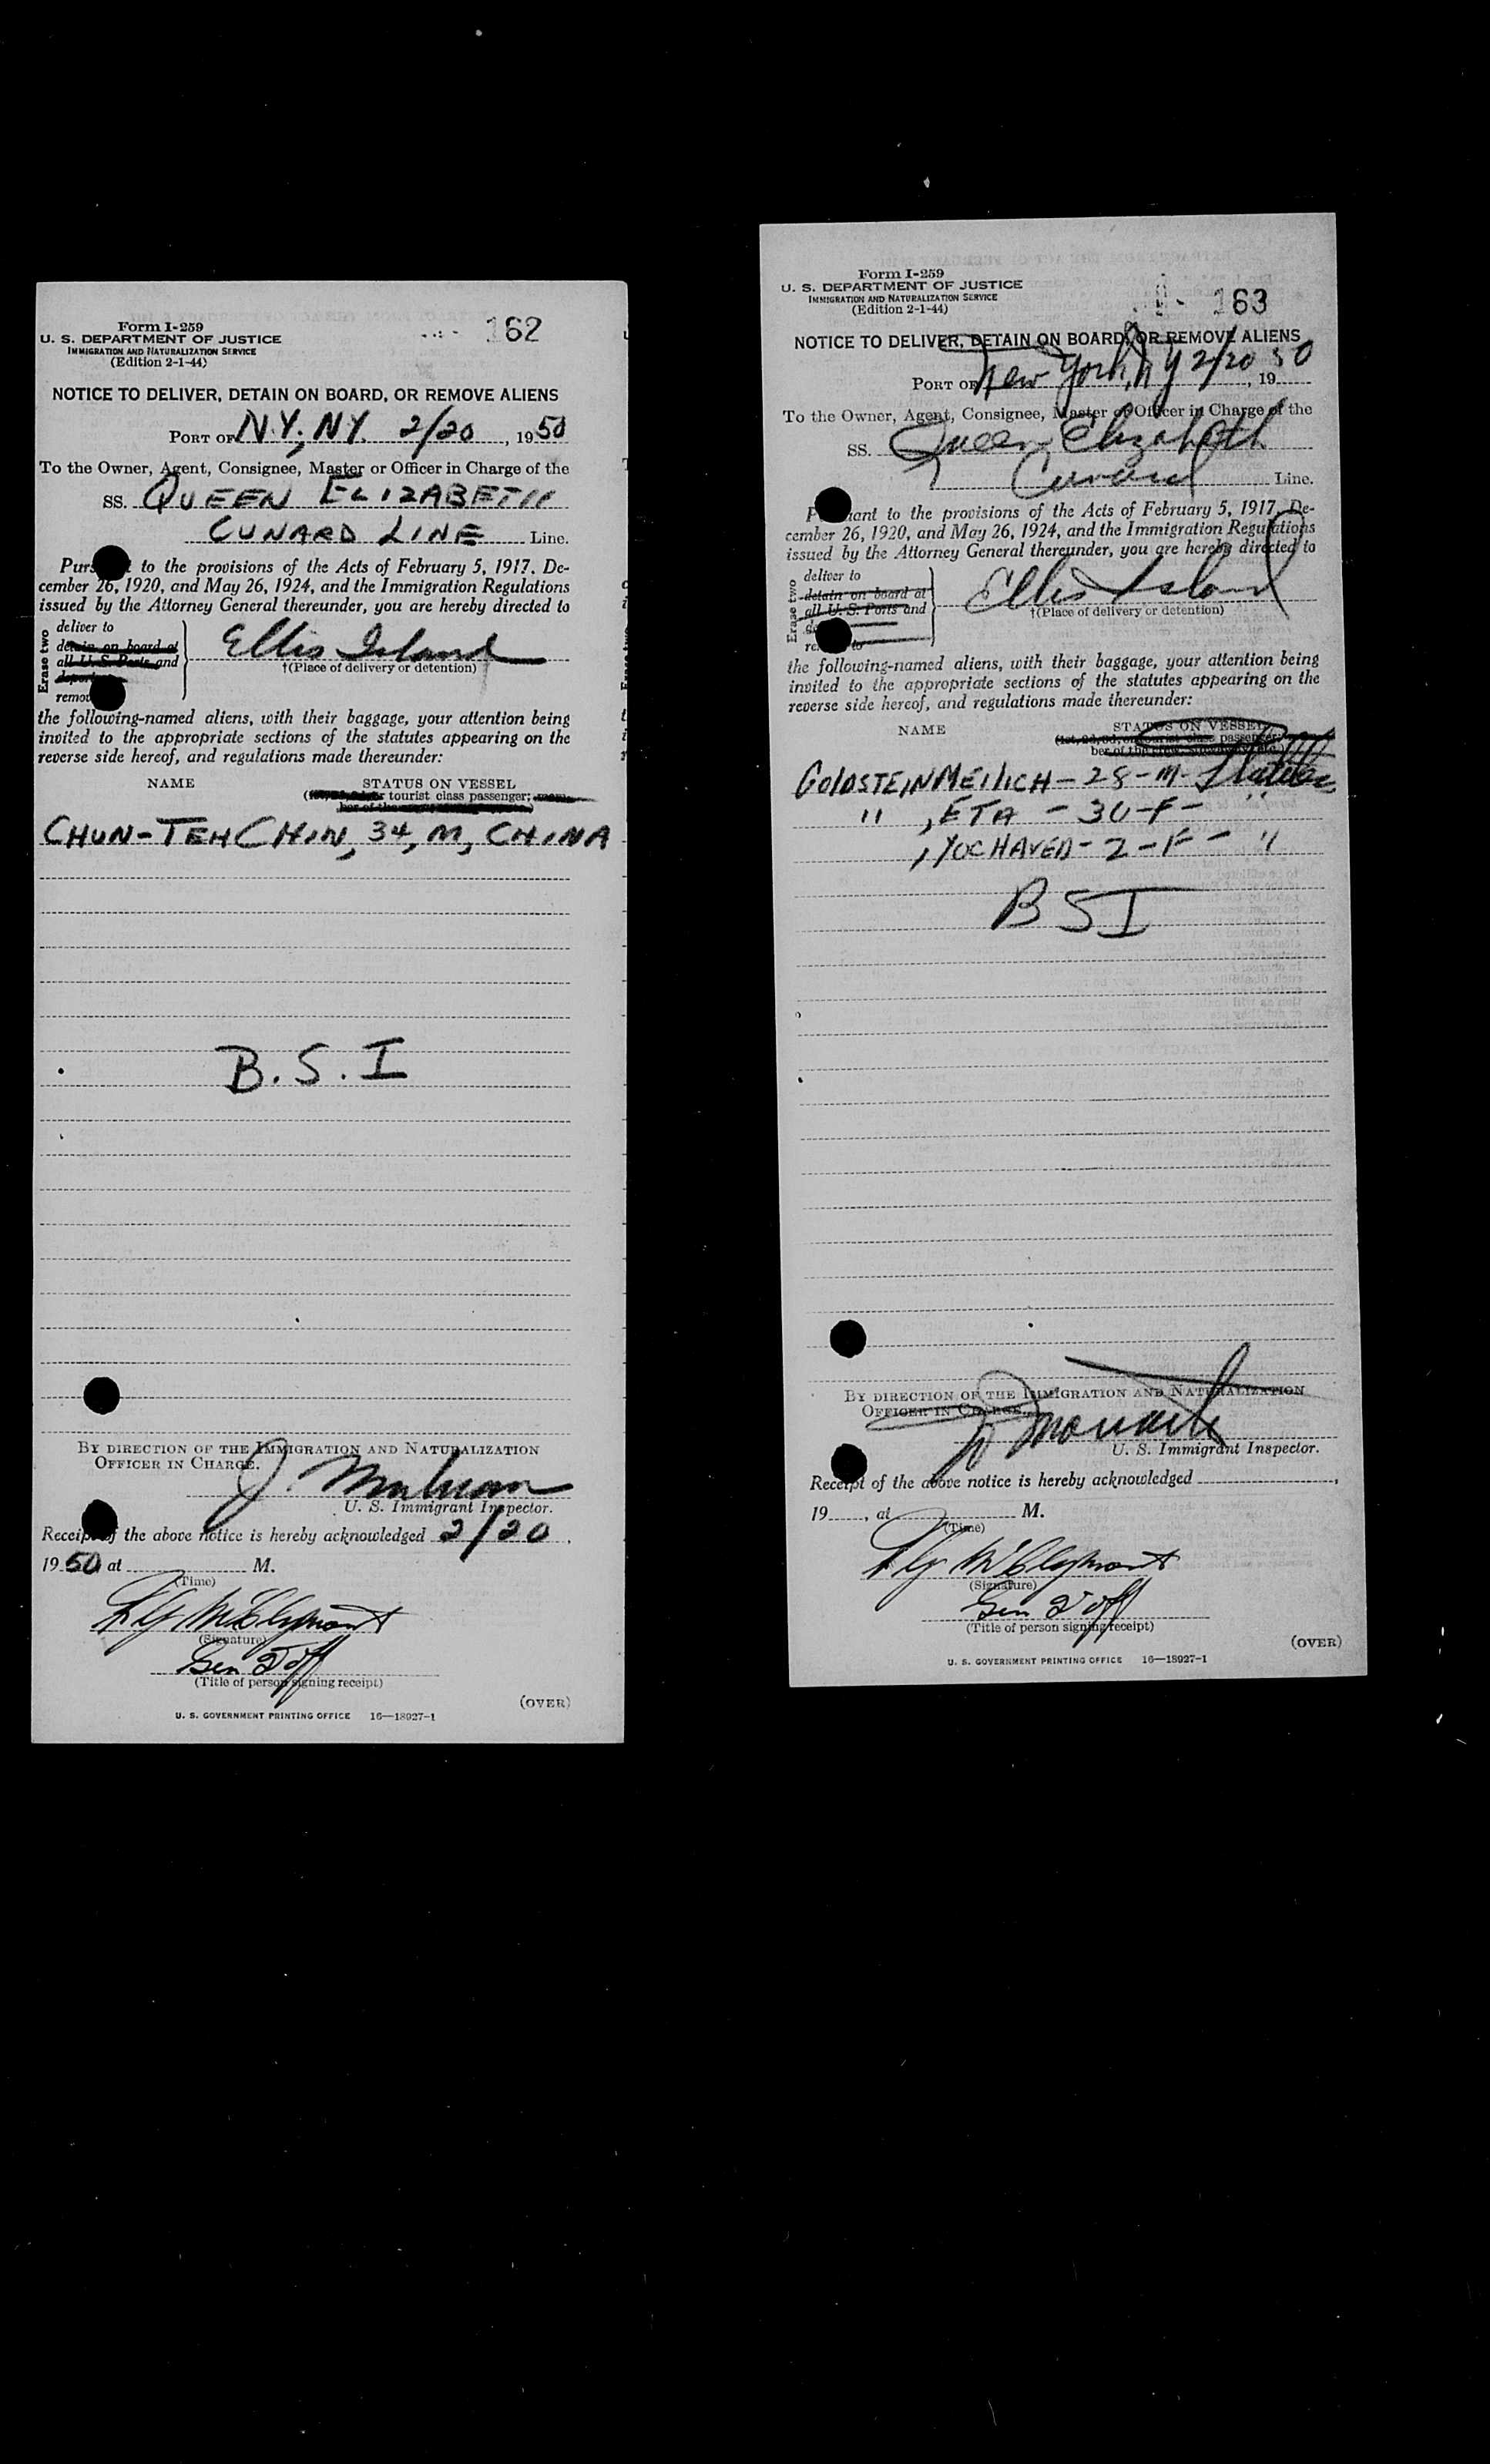 Form I-259
U. S. DEPARTMENT OF JUSTICE
IMMIGRATION AND NATURALIZATION SERVICE
(Edition 2-1-44)
162
NOTICE TO DELIVER, DETAIN ON BOARD, OR REMOVE ALIENS
PORT OF N.Y., N.Y. 2/20, 1950
To the Owner, Agent, Consignee, Master or Officer in Charge of the
SS. QUEEN ELIZABETH
CUNARD LINE Line.
to the provisions of the Acts of February 5, 1917, De-
cember 26, 1920, and May 26, 1924, and the Immigration Regulations
issued by the Attorney General thereunder, you are hereby directed to
Erase two
deliver to
detain on board at
all U. S. Ports and
Ellis Island
†(Place of delivery or detention)
the following-named aliens, with their baggage, your attention being
invited to the appropriate sections of the statutes appearing on the
reverse side hereof, and regulations made thereunder:
NAME STATUS ON VESSEL
tourist class passenger;
CHUN-TEH CHIN, 34, M, CHINA
B.S.I
BY DIRECTION OF THE IMMIGRATION AND NATURALIZATION
OFFICER IN CHARGE.
J.
U. S. Immigrant Inspector.
Receipt of the above notice is hereby acknowledged 2/20,
1950 at M.
(Time)
(Signature)
(Title of person signing receipt)
(OVER)
U. S. GOVERNMENT PRINTING OFFICE 16—18927-1
Form I-259
U. S. DEPARTMENT OF JUSTICE
IMMIGRATION AND NATURALIZATION SERVICE
(Edition 2-1-44)
163
NOTICE TO DELIVER, DETAIN ON BOARD, OR REMOVE ALIENS
PORT OF New York, N Y 2/20, 1950
To the Owner, Agent, Consignee, Master or Officer in Charge of the
SS. Queen Elizabeth
Cunard Line.
to the provisions of the Acts of February 5, 1917, De-
cember 26, 1920, and May 26, 1924, and the Immigration Regulations
issued by the Attorney General thereunder, you are hereby directed to
Erase two
deliver to
detain on board at
all U. S. Ports and
Ellis Island
†(Place of delivery or detention)
the following-named aliens, with their baggage, your attention being
invited to the appropriate sections of the statutes appearing on the
reverse side hereof, and regulations made thereunder:
NAME STATUS ON VESSEL
GOLDSTEIN MEILICH - 28 - M -
" , ETA - 30 - F - "
, YOCHAVED - 2 - F - "
BSI
BY DIRECTION OF THE IMMIGRATION AND NATURALIZATION
OFFICER IN CHARGE.
U. S. Immigrant Inspector.
Receipt of the above notice is hereby acknowledged ,
19 , at M.
(Time)
(Signature)
(Title of person signing receipt)
(OVER)
U. S. GOVERNMENT PRINTING OFFICE 16—18927-1